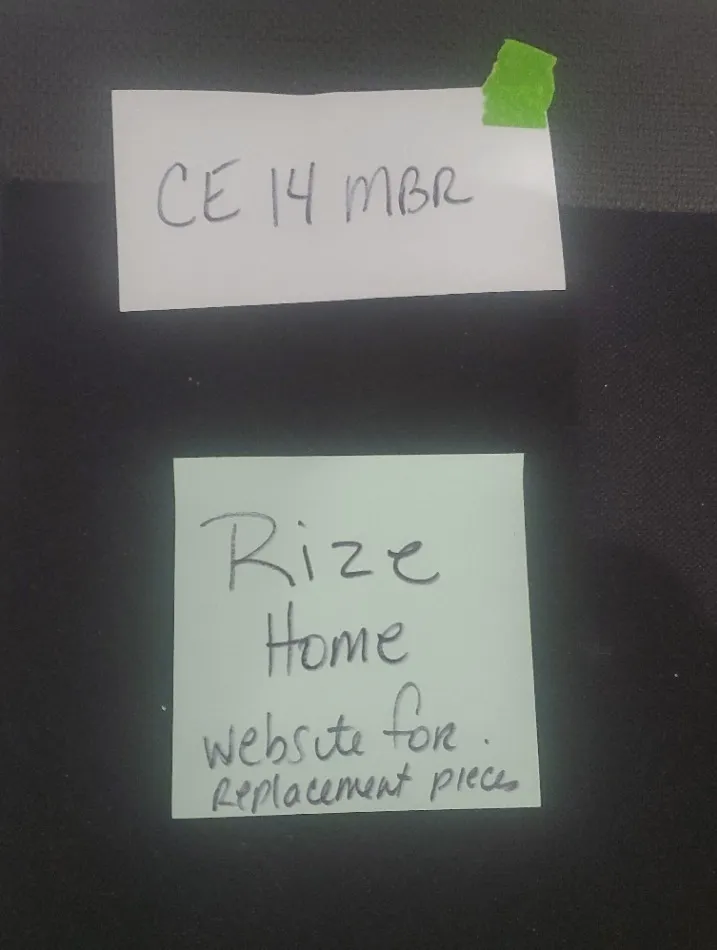 CE 14 MBR
Rize
Home
website for
Replacement pieces